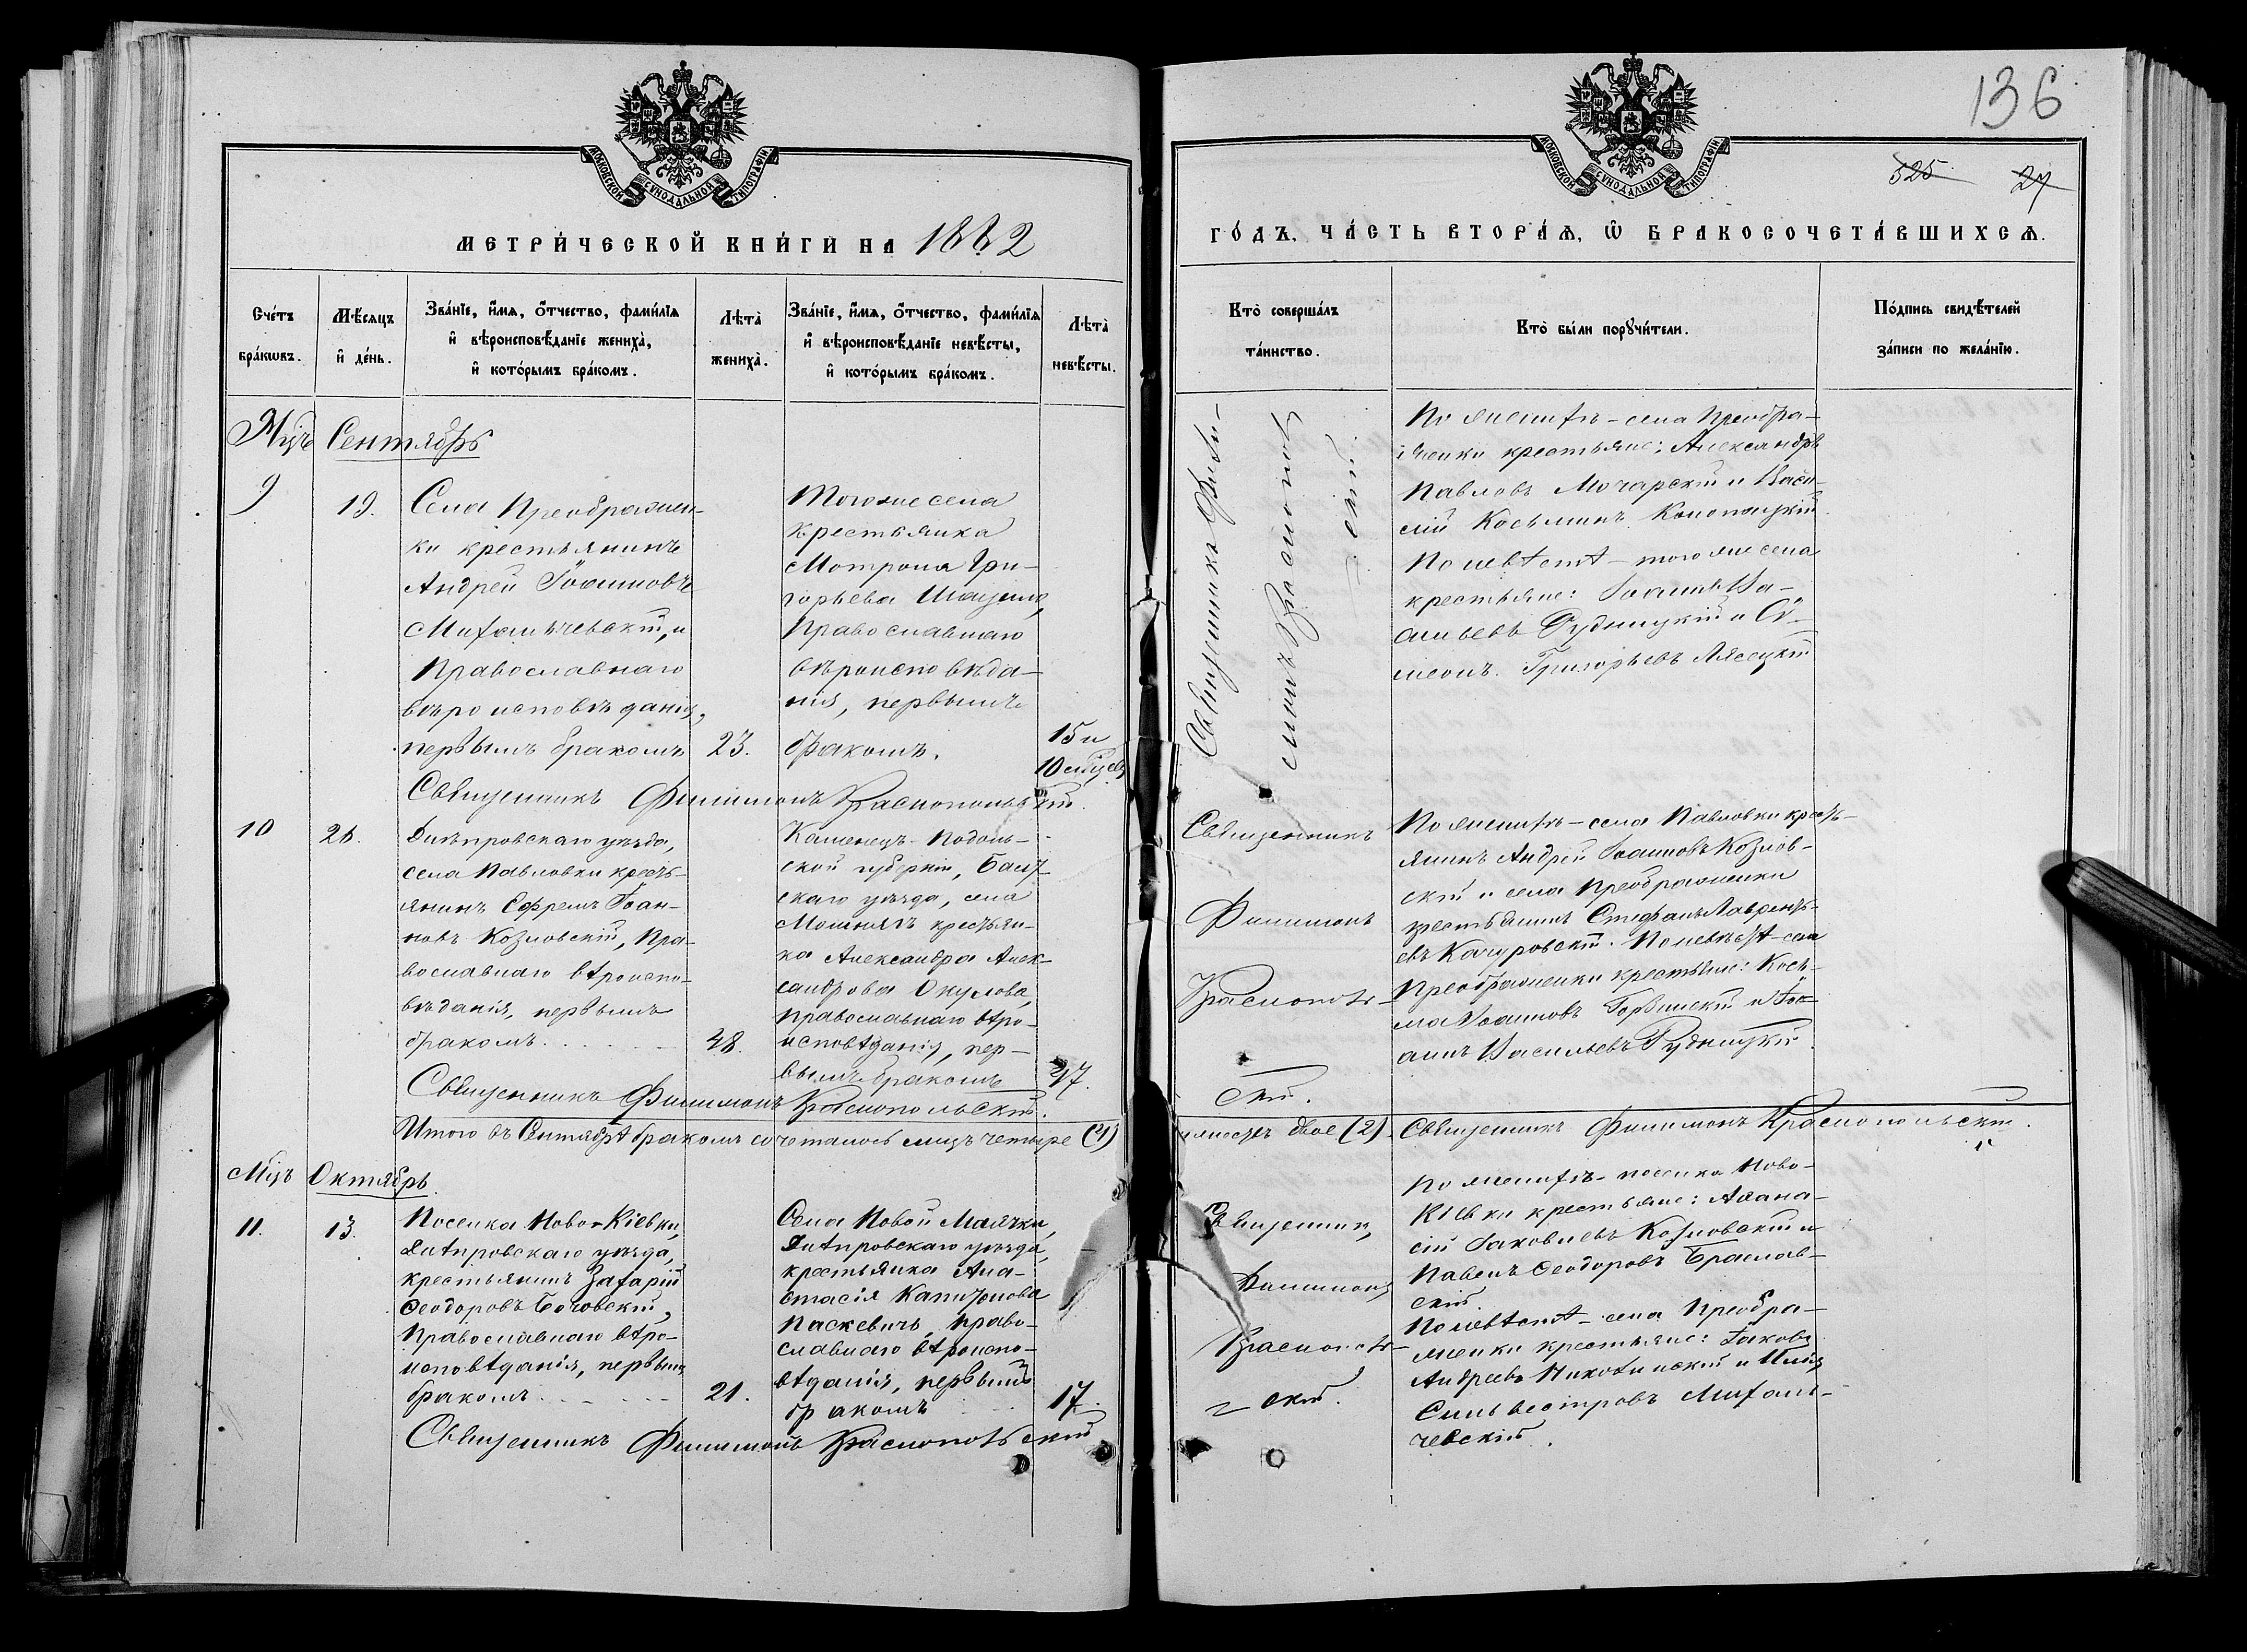 МОСКОВСКОЙ СѴНОДАЛЬНОЙ ТИПОГРАФІИ
МЕТРИ́ЧЕСКОЙ КНИ́ГИ НА 1882
Сче́тъ бра́кѡвъ.
Мѣ́сяцъ и҆ де́нь.
Зва́нїе, и҆́мя, о҆́тчество, фами́лїя
и҆ вѣроисповѣ́данїе жениха̀,
и҆ кото́рымъ бра́комъ.
Лѣта̀ жениха̀.
Зва́нїе, и҆́мя, о҆́тчество, фами́лїя
и҆ вѣроисповѣ́данїе невѣ́сты,
и҆ кото́рымъ бра́комъ.
Лѣта̀ невѣ́сты.
Мцъ Сентябрь
9
19.
Села Преображен-
ки крестьянинъ
Андрей Іоанновъ
Михальчевскій,
Православнаго
вѣроисповѣданія,
первымъ бракомъ
23.
Тогоже села
крестьянка
Мотрона Гри-
горьева
Православнаго
вѣроисповѣда-
нія, первымъ
бракомъ.
15 и
10 мѣсец
Священникъ Филимонъ Краснопольскій.
10
26.
Днѣпровскаго уѣзда,
села Павловки кресть-
янинъ Ефремъ Іоан-
новъ Козловскій, Пра-
вославнаго вѣроиспо-
вѣданія, первымъ
бракомъ
48.
Каменецъ-Подоль-
ской губерніи, Балт-
скаго уѣзда, села
крестьян-
ка Александра Алек-
сандрова Окулова,
Православнаго вѣро-
исповѣданія, пер-
вымъ бракомъ
47.
Священникъ Филимонъ Краснопольскій.
Итого въ Сентябрѣ бракомъ сочеталось лицъ четыре (4)
Мцъ Октябрь.
11.
13.
Поселка Ново-Кіевки,
Днѣпровскаго уѣзда,
крестьянинъ Захарій
Ѳеодоровъ
Православнаго вѣро-
исповѣданія, первымъ
бракомъ
21.
Села Новой Маячки,
Днѣпровскаго уѣзда,
крестьянка Ана-
стасія Капитонова
Паскевичъ, право-
славнаго вѣроиспо-
вѣданія, первымъ
бракомъ
17.
Священникъ Филимонъ Краснопольскій
136
МОСКОВСКОЙ СѴНОДАЛЬНОЙ ТИПОГРАФІИ
525 27
ГО́ДЪ, ЧА́СТЬ ВТОРА́Ѧ, Ѡ҆ БРАКОСОЧЕТА́ВШИХСѦ.
Кто̀ соверша́лъ
та́инство.
Кто̀ бы́ли порꙋчи́тели.
По́дпись свидѣ́телей
за́писи по жела́нїю.
Священника Фили-
монъ Краснополь-
скій.
По женихѣ – села Преобра-
женки крестьяне: Александръ
Павловъ Мочарскій и Васи-
лій Косьминъ Конопацкій.
По невѣстѣ – тогоже села
крестьяне: Іоаннъ Ва-
сильевъ Рудницкій и Си-
меонъ Григорьевъ Лясецкій
Священникъ
Филимонъ
Краснополь-
скій.
По женихѣ – села Павловки кресть-
янинъ Андрей Іоанновъ Козлов-
скій и села Преображенки
крестьянинъ Стефанъ Лаврентъ-
евъ Качуровскій. По невѣстѣ – села
Преображенки крестьяне: Кось-
ма Іоанновъ Горбинскій и Іо-
аннъ Васильевъ Рудницкій.
двое (2). Священникъ Филимонъ Краснопольскій.
Священникъ
Филимонъ
Краснополь-
скій.
По женихѣ – поселка Ново-
Кіевки крестьяне: Аѳана-
сій Іаковлевъ Козловскій и
Павелъ Ѳеодоровъ Браслав-
скій.
По невѣстѣ – села Преобра-
женки крестьяне: Іаковъ
Андреевъ и Илія
Сильвестровъ Михаль-
чевскій.